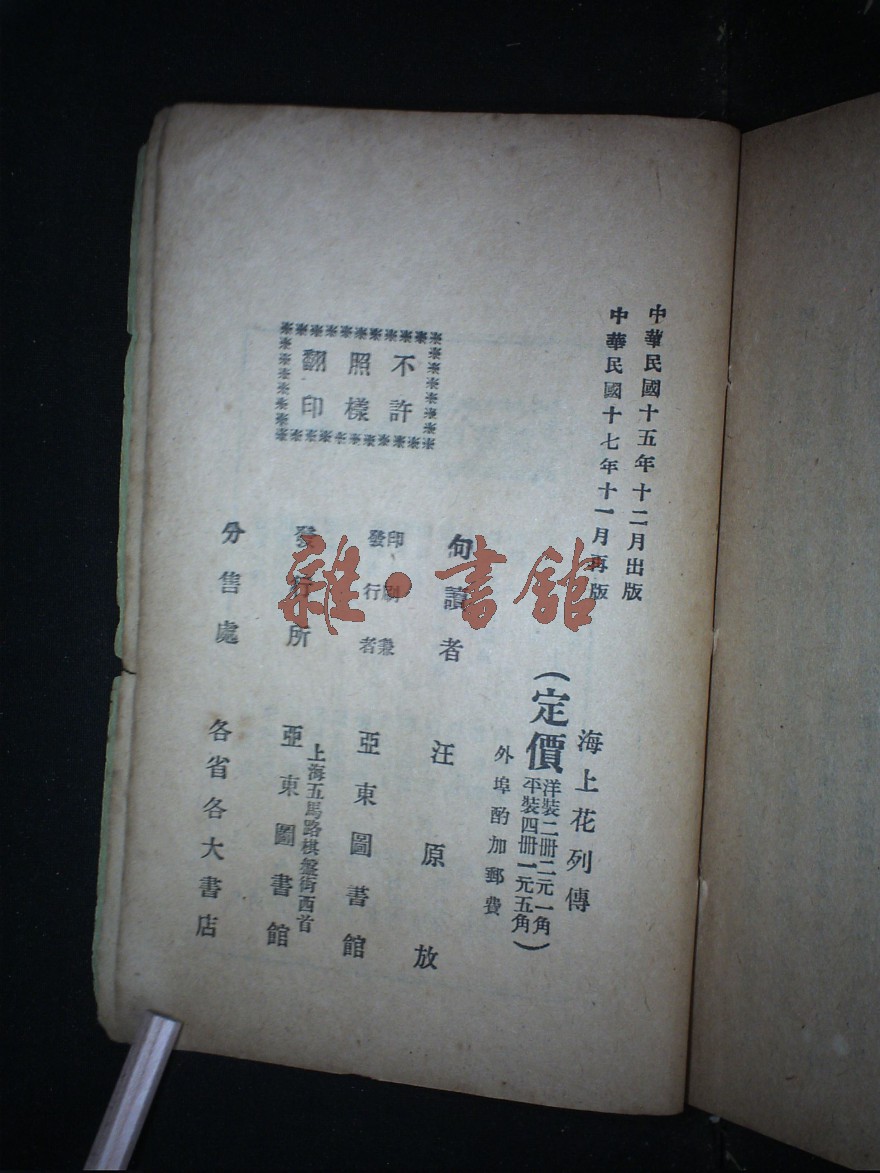 中華民國十五年十二月出版
中華民國十七年十一月再版
海上花列傳
(定價 洋裝二冊二元一角
平裝四冊一元五角)
外埠酌加郵費
句讀者 汪原放
印刷兼
發行者 亞東圖書館
上海五馬路棋盤街西首
發行所 亞東圖書館
分售處 各省各大書店
不許
照樣
翻印
雜·書館